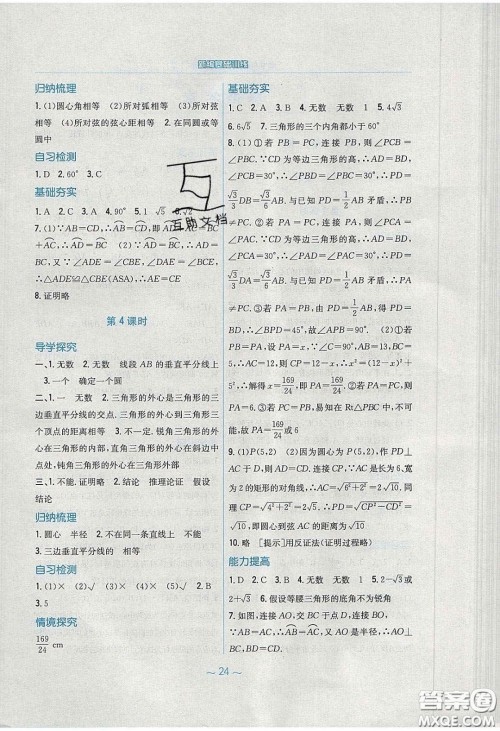 新编基础训练
归纳梳理
1.(1)圆心角相等 (2)所对弧相等 (3)所对弦
相等 (4)所对弦的弦心距相等 2.在同圆或等
圆中
自习检测
1.D 2.60° 3.C
基础夯实
1.A 2.B 3.A 4.90° 5.1 √5 6.√2
7.(1)∵AB=CD,∴AB=CD,即AD+AC=BD
+AC,∴AD=BC (2)∵AD=BC,∴AD=
BC,又∵∠ADE=∠CBE,∠DAE=∠BCE,
∴△ADE≌△CBE(ASA),∴AE=CE
8.证明略
第4课时
导学探究
一、1.无数 2.无数 线段AB的垂直平分线上
3.一个 确定一个圆
二、1.一 无数 2.三角形的外心是三角形的三
边垂直平分线的交点.三角形的外心到三角形三
个顶点的距离相等 3.不一定.锐角三角形的外
心在三角形的内部,直角三角形的外心在斜边中
点处,钝角三角形的外心在三角形外部
三、1.不能 2.结论 推理论证 假设
结论
归纳梳理
1.圆心 半径 2.不在同一条直线上 不能
3.三边垂直平分线的 相等
自习检测
1.(1)× (2)√ 2.B 4.(1)× (2)√
3.5
情境探究
169/24 cm
基础夯实
1.C 2.A 3.B 4.无数 无数 1 5.4√3
6.6√5 7.三角形的三个内角都小于60°
8.(1)①若PB=PC,连接PB,则∠PCB=
∠PBC.∵CD为等边三角形的高,∴AD=BD,
∠PCB=30°,∴∠PBD=∠PBC=30°,∴PD=
√3/3 DB=√3/6 AB.与已知PD=1/2 AB矛盾,∴PB≠
PC.②若PA=PC,连接PA,则∠PCA=
∠PAC.∵CD为等边三角形的高,∴AD=BD,
∠PCA=30°,∴∠PAD=∠PAC=30°,∴PD=
√3/3 AD=√3/6 AB.与已知PD=1/2 AB矛盾,∴PA≠
PC.③若PA=PB,由PD=1/2 AB,得PD=
BD,∴∠BPD=45°,故∠APB=90° (2)①若
PB=PC,设PA=x,∵∠C=90°,AB=13,BC
=5,∴AC=12,则CP=12-x,∴x²=(12-x)²+
5²,∴解得x=169/24,即PA=169/24.②若PA=PC,则
PA=6.③若PA=PB,易知在Rt△PBC中不可
能.故PA=169/24或6
9.(1)P(5,2) (2)因为圆心为P(5,2),作PD
⊥AC于D,则AD=CD.连接CP,∵AC为长6,宽
为2的矩形的对角线,∴AC=√(6²+2²)=2√10,同理
CP=√(4²+2²)=2√5,∴PD=√(CP²-CD²)=
√10,即圆心到弦AC的距离为√10
10.略 [提示]用反证法(证明过程略)
能力提高
1.D 2.C 3.B 4.无数 1 5.2-√3或2
+√3 6.假设等腰三角形的底角不为锐角
∵AB=AC,∴AB=AC.又∵AO是半径,∴AO
⊥BC,BD=CD.
互助文档
～24～
答案圈
MXQE.COM